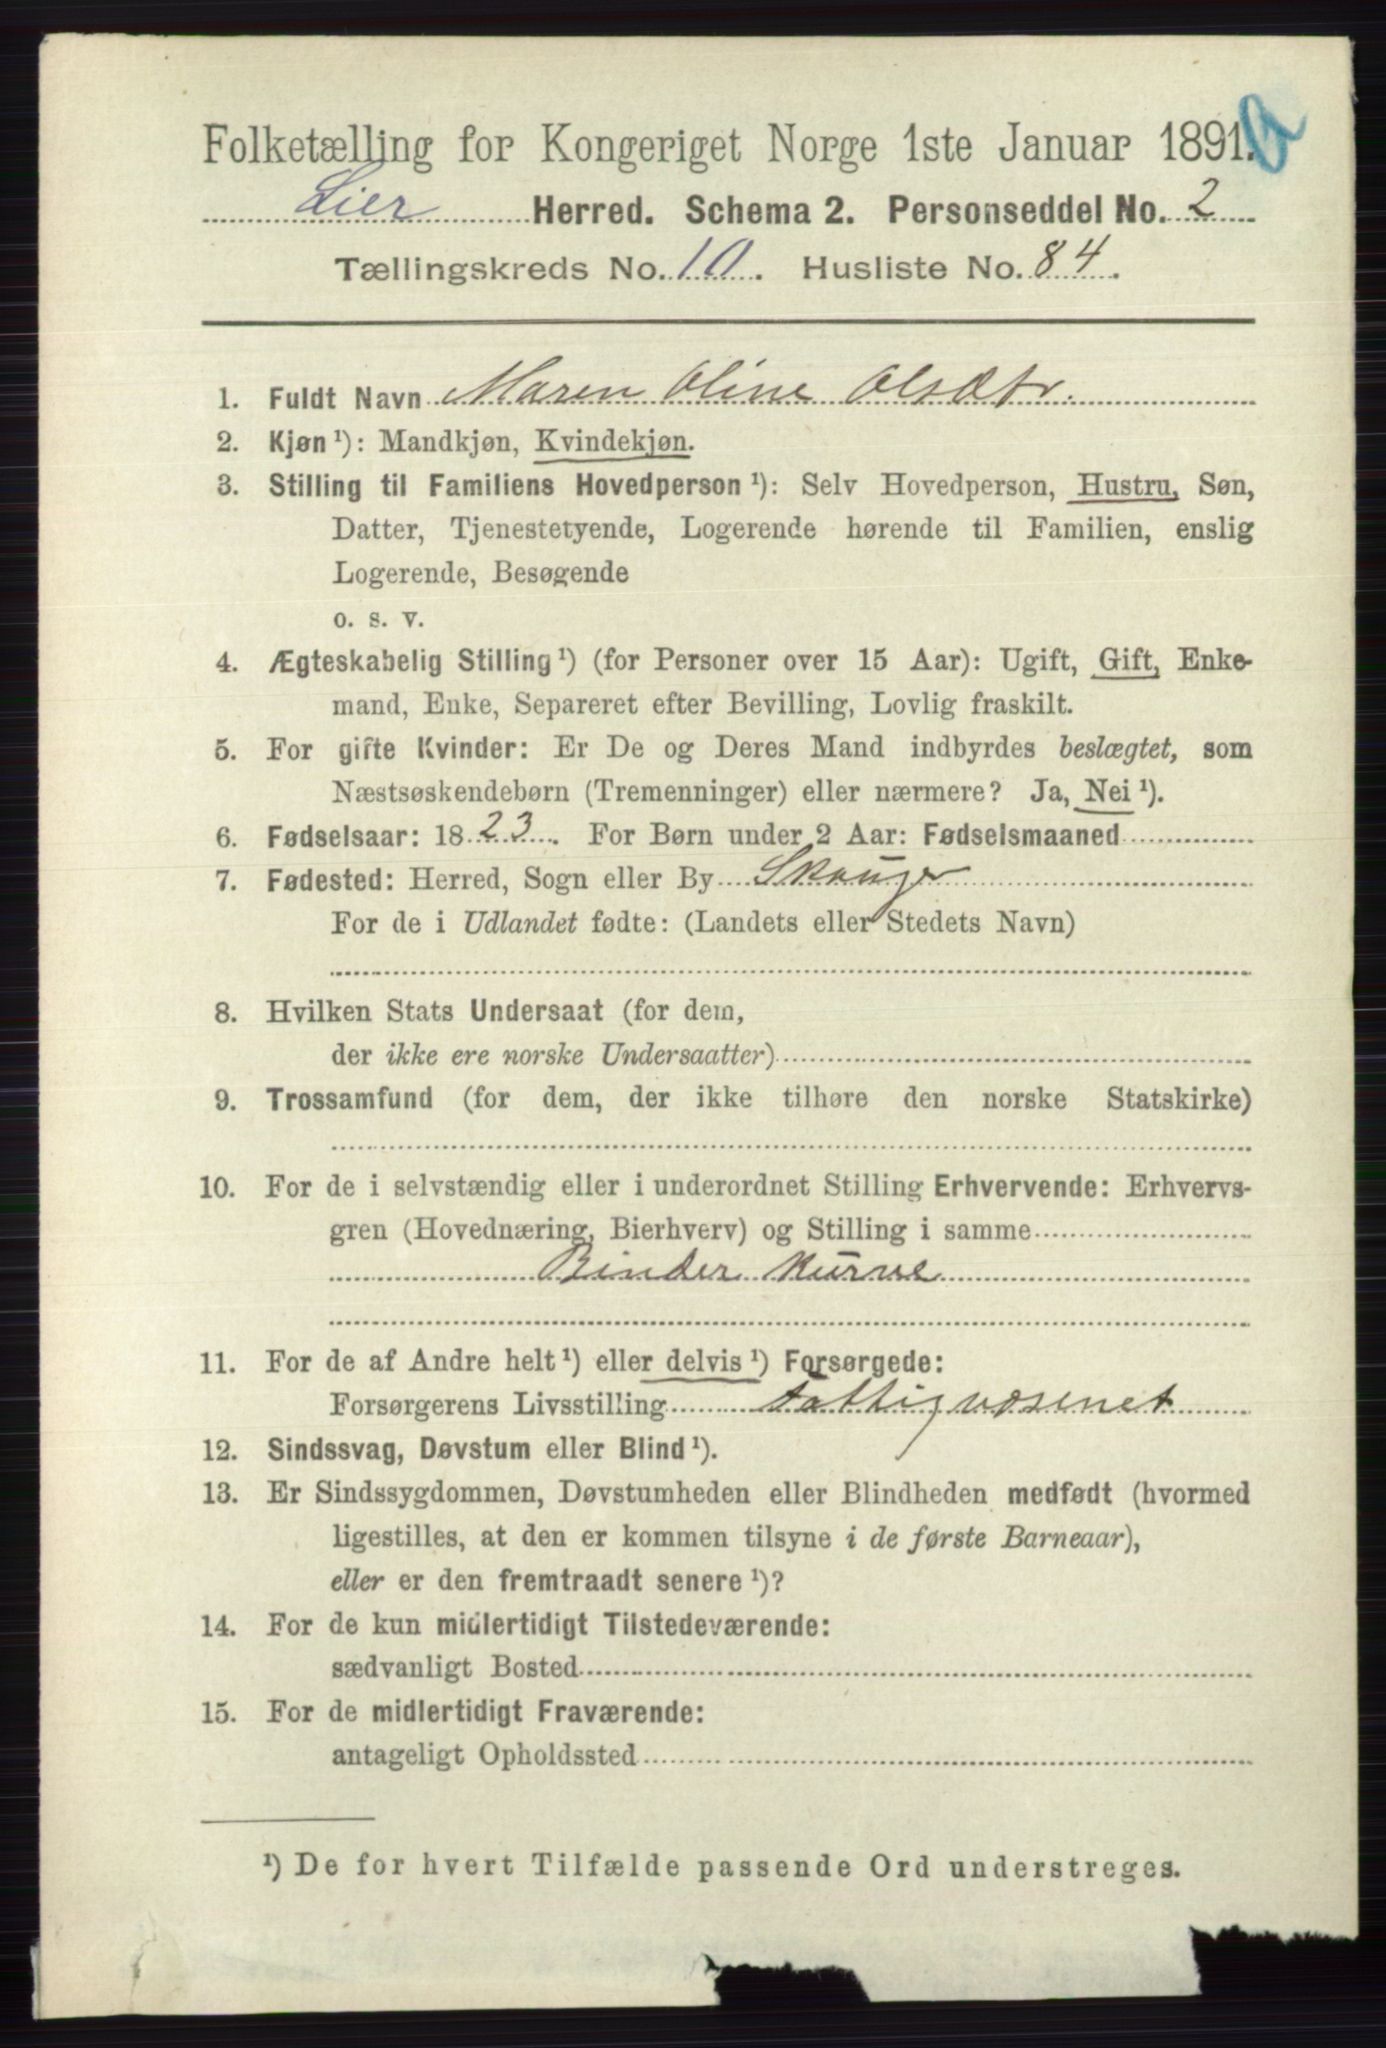 Folketælling for Kongeriget Norge 1ste Januar 1891.
Lier Herred. Schema 2. Personseddel No. 2
Tællingskreds No. 10. Husliste No. 84.
1. Fuldt Navn Maren Oline Olsdtr.
2. Kjøn ¹): Mandkjøn, Kvindekjøn.
3. Stilling til Familiens Hovedperson ¹): Selv Hovedperson, Hustru, Søn,
Datter, Tjenestetyende, Logerende hørende til Familien, enslig
Logerende, Besøgende
o. s. v.
4. Ægteskabelig Stilling ¹) (for Personer over 15 Aar): Ugift, Gift, Enke-
mand, Enke, Separeret efter Bevilling, Lovlig fraskilt.
5. For gifte Kvinder: Er De og Deres Mand indbyrdes beslægtet, som
Næstsøskendebørn (Tremenninger) eller nærmere? Ja, Nei ¹).
6. Fødselsaar: 1823. For Børn under 2 Aar: Fødselsmaaned
7. Fødested: Herred, Sogn eller By Skouger
For de i Udlandet fødte: (Landets eller Stedets Navn)
8. Hvilken Stats Undersaat (for dem,
der ikke ere norske Undersaatter)
9. Trossamfund (for dem, der ikke tilhøre den norske Statskirke)
10. For de i selvstændig eller i underordnet Stilling Erhvervende: Erhvervs-
gren (Hovednæring, Bierhverv) og Stilling i samme
Binder Kurve
11. For de af Andre helt ¹) eller delvis ¹) Forsørgede:
Forsørgerens Livsstilling Fattigvæsenet
12. Sindssvag, Døvstum eller Blind ¹).
13. Er Sindssygdommen, Døvstumheden eller Blindheden medfødt (hvormed
ligestilles, at den er kommen tilsyne i de første Barneaar),
eller er den fremtraadt senere ¹)?
14. For de kun midlertidigt Tilstedeværende:
sædvanligt Bosted
15. For de midlertidigt Fraværende:
antageligt Opholdssted
¹) De for hvert Tilfælde passende Ord understreges.